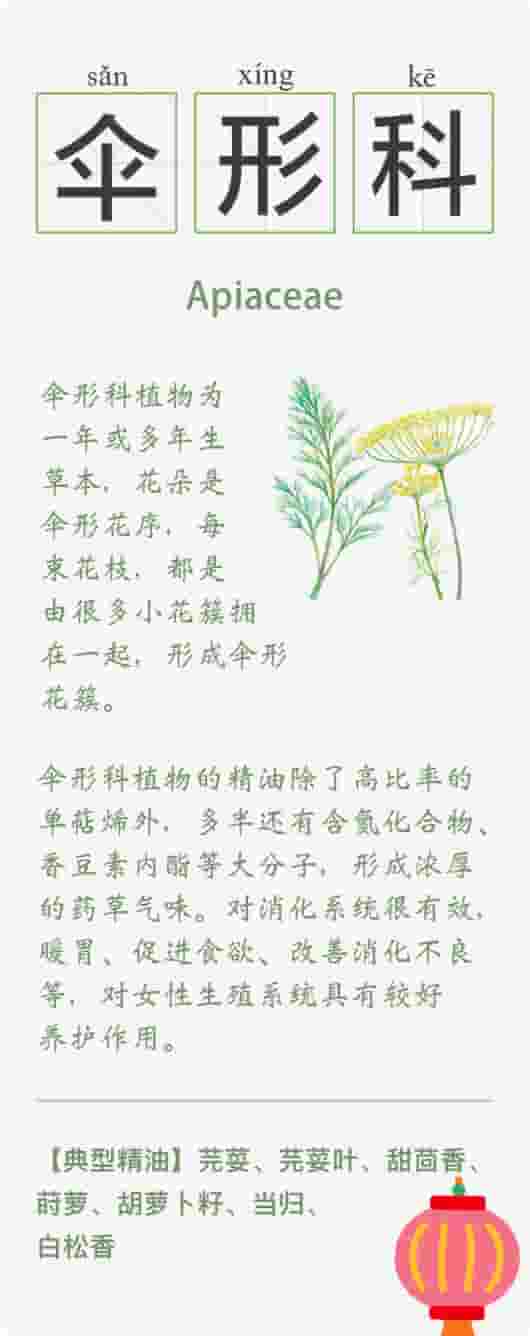 sǎn xíng kē
伞形科
Apiaceae
伞形科植物为
一年或多年生
草本，花朵是
伞形花序，每
束花枝，都是
由很多小花簇拥
在一起，形成伞形
花簇。
伞形科植物的精油除了高比率的
单萜烯外，多半还有含氮化合物、
香豆素内酯等大分子，形成浓厚
的药草气味。对消化系统很有效，
暖胃、促进食欲、改善消化不良
等，对女性生殖系统具有较好
养护作用。
【典型精油】芫荽、芫荽叶、甜茴香、
莳萝、胡萝卜籽、当归、
白松香